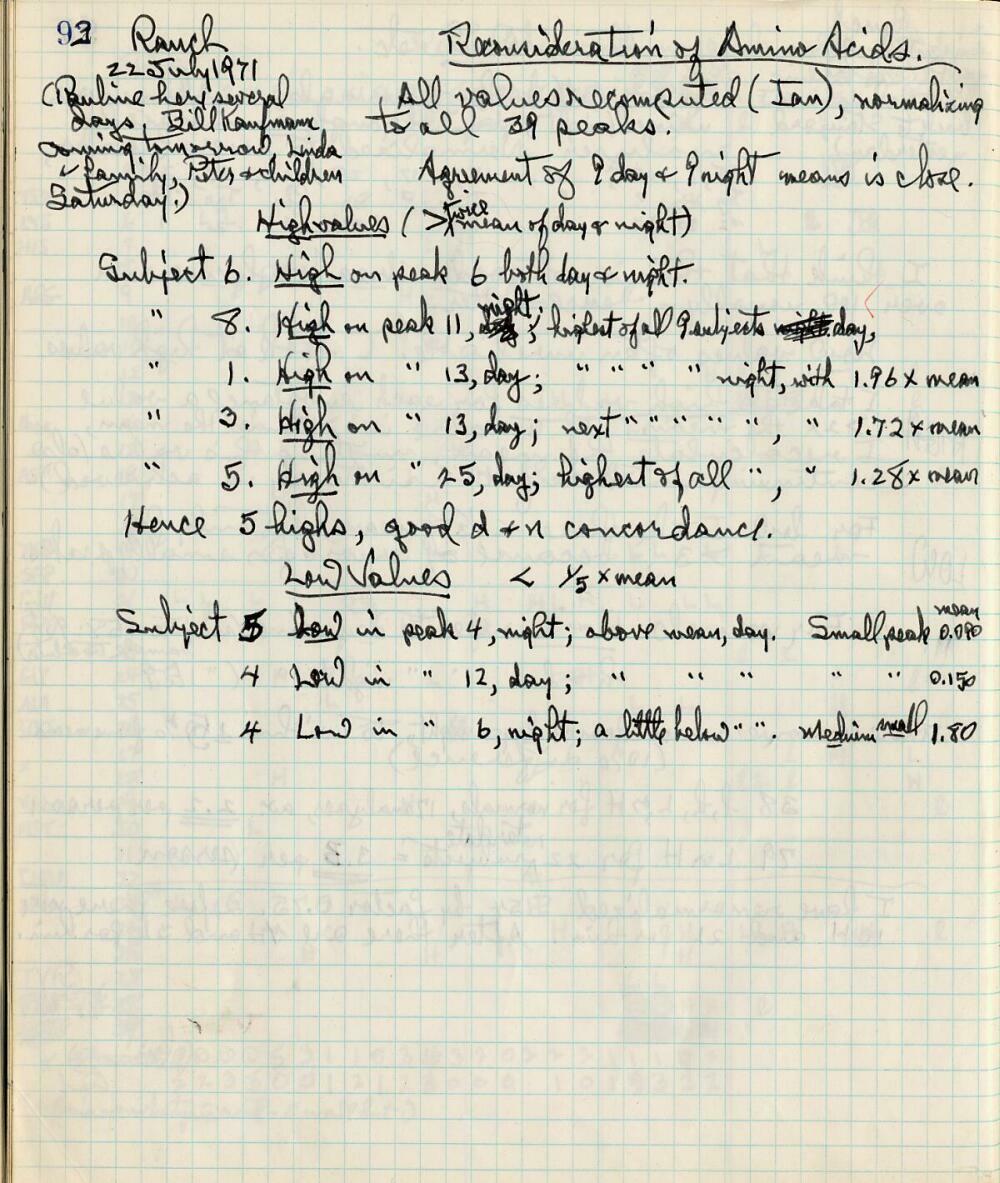 92 Ranch
22 July 1971
(Pauline here several
days, Bill Kaufmann
coming tomorrow, Linda
& family, Peter & children
Saturday.)
Reconsideration of Amino Acids.
All values recomputed (Ian), normalizing
to all 39 peaks.
Agreement of 9 day & 9 night means is close.
High values (> twice mean of day & night)
Subject 6. High on peak 6 both day & night.
" 8. High on peak 11, night; highest of all 9 subjects day,
" 1. High on " 13, day; " " " " night, with 1.96 x mean
" 3. High on " 13, day; next " " " " " ", " 1.72 x mean
" 5. High on " 25, day; highest of all ", " 1.28 x mean
Hence 5 highs, good d & n concordance.
Low Values < 1/5 x mean
Subject 5 Low in peak 4, night; above mean, day. Small peak mean 0.090
4 Low in " 12, day; " " " " " 0.150
4 Low in " 6, night; a little below " ". Medium small 1.80